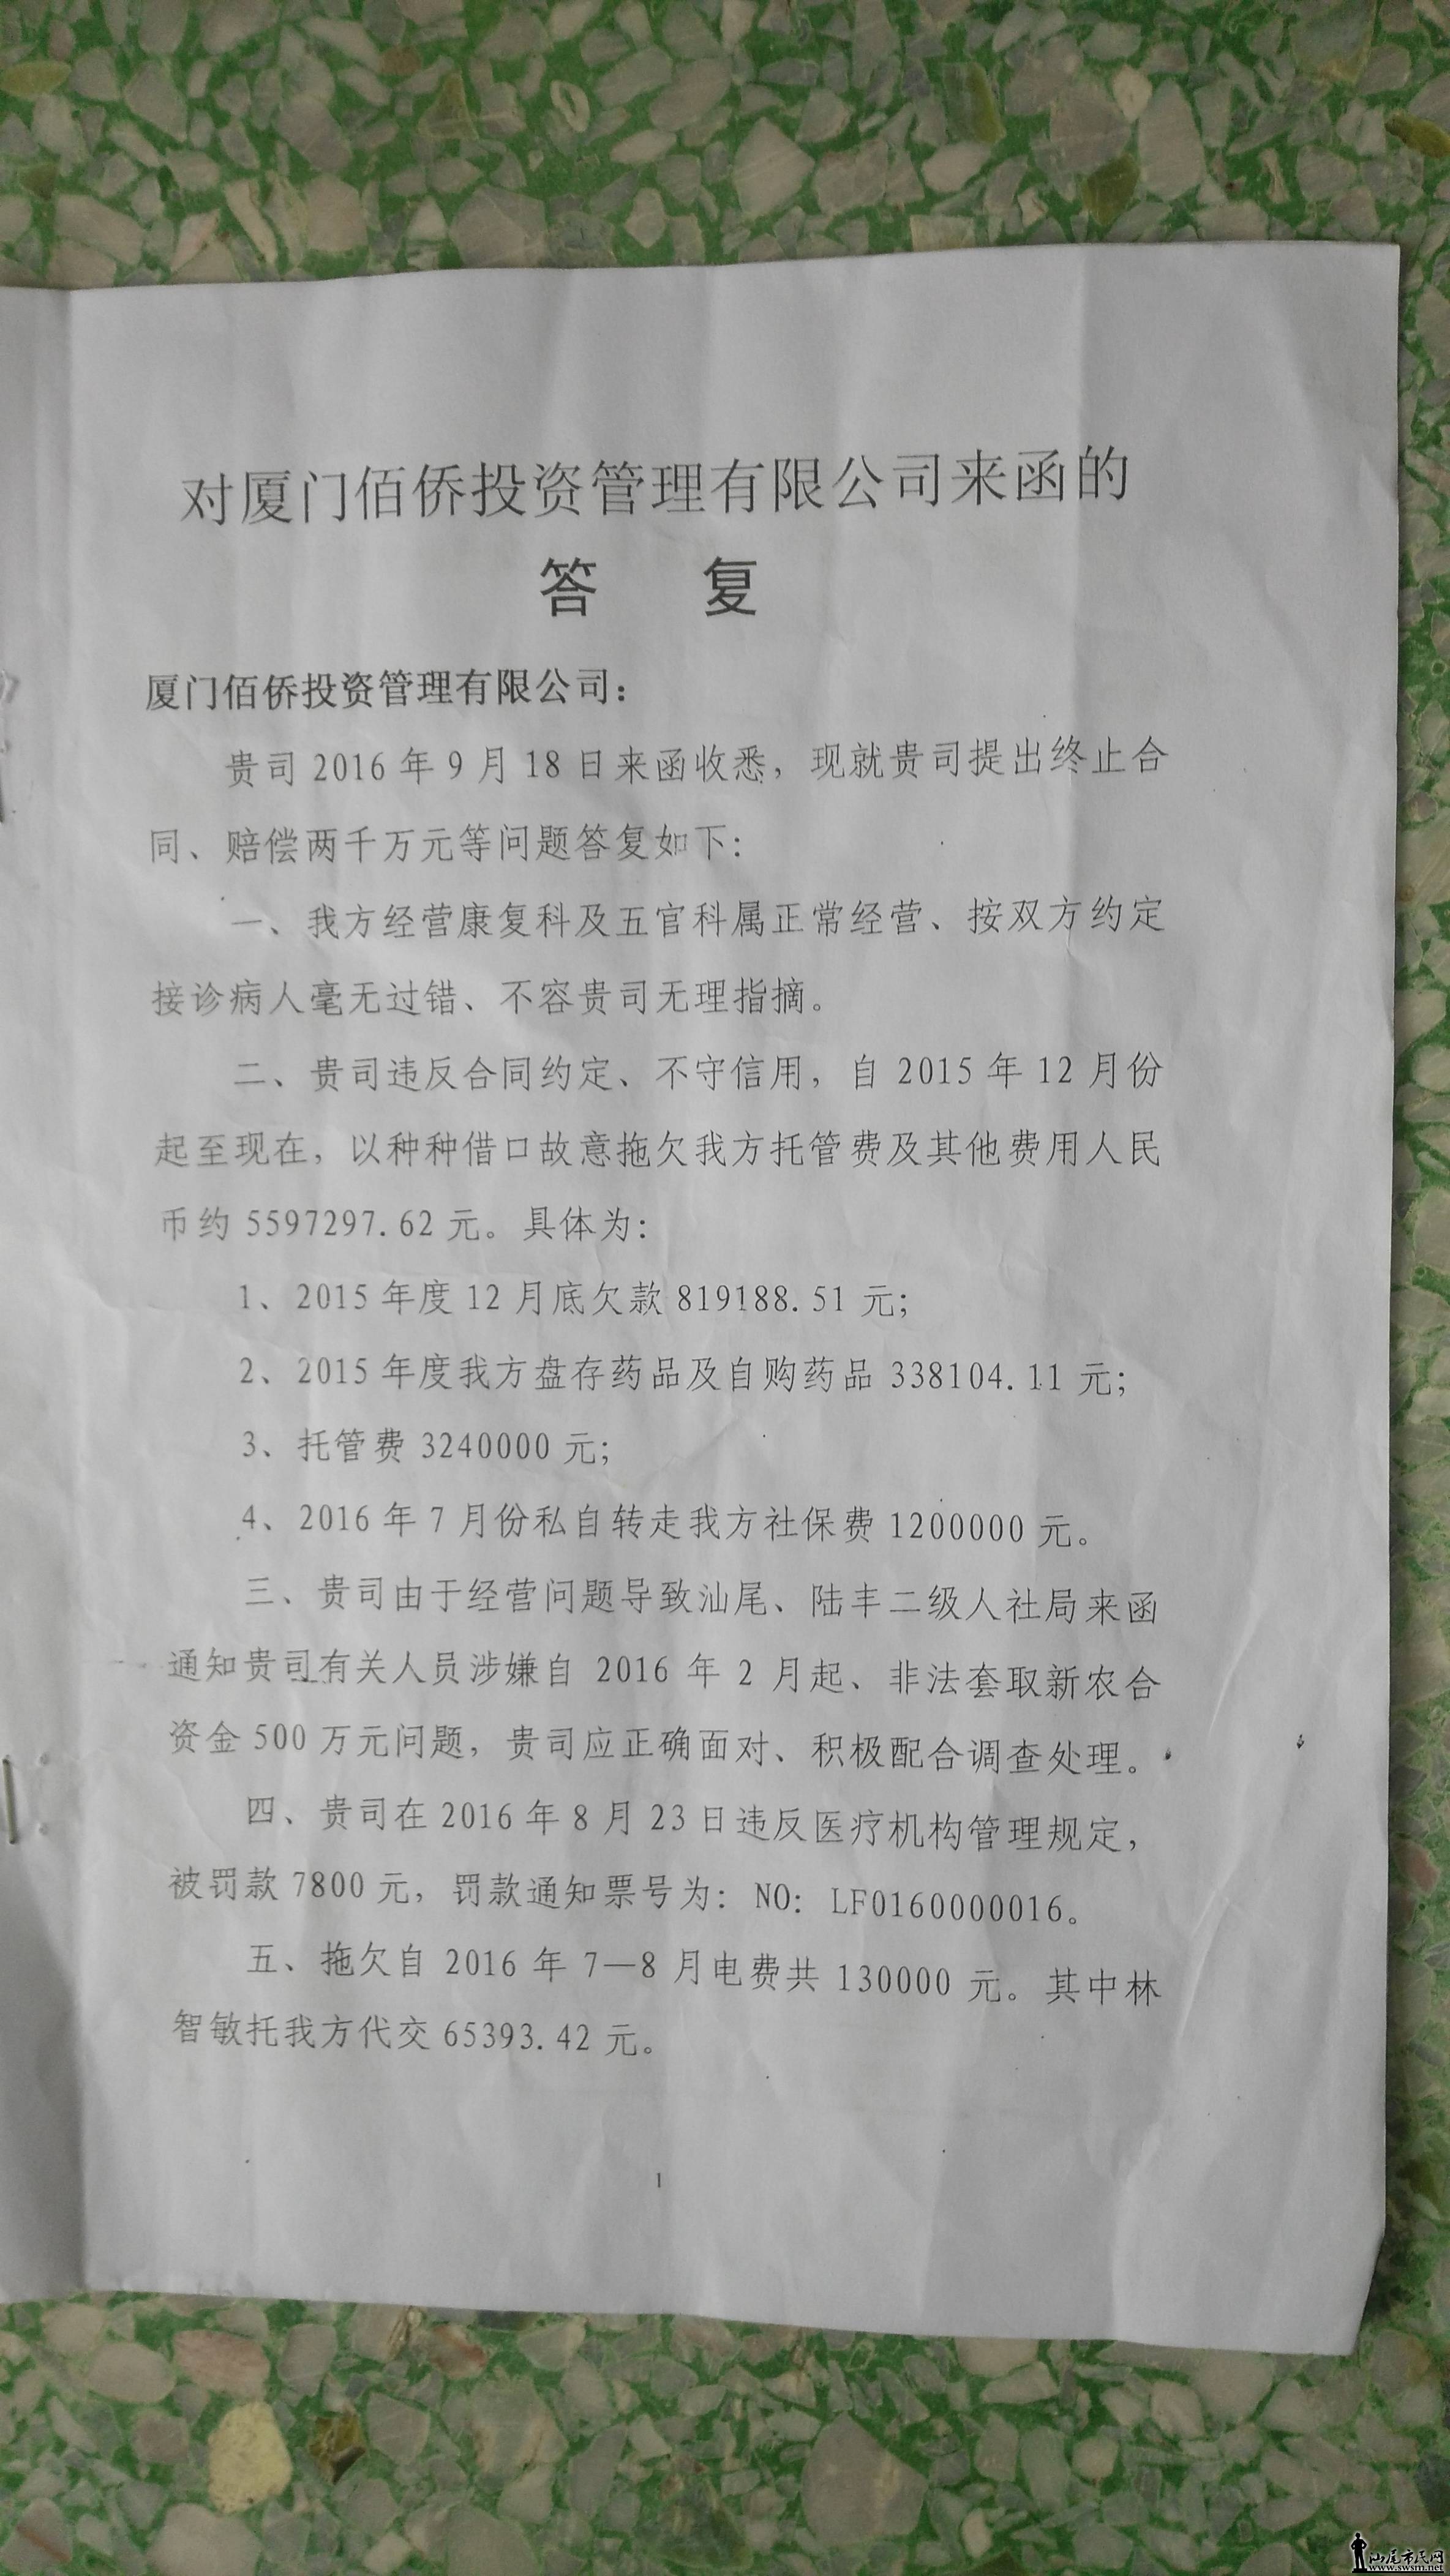 对厦门佰侨投资管理有限公司来函的
答 复
厦门佰侨投资管理有限公司：
贵司 2016 年 9 月 18 日来函收悉，现就贵司提出终止合
同、赔偿两千万元等问题答复如下：
一、我方经营康复科及五官科属正常经营、按双方约定
接诊病人毫无过错、不容贵司无理指摘。
二、贵司违反合同约定、不守信用，自 2015 年 12 月份
起至现在，以种种借口故意拖欠我方托管费及其他费用人民
币约 5597297.62 元。具体为：
1、2015 年度 12 月底欠款 819188.51 元；
2、2015 年度我方盘存药品及自购药品 338104.11 元；
3、托管费 3240000 元；
4、2016 年 7 月份私自转走我方社保费 1200000 元。
三、贵司由于经营问题导致汕尾、陆丰二级人社局来函
通知贵司有关人员涉嫌自 2016 年 2 月起、非法套取新农合
资金 500 万元问题，贵司应正确面对、积极配合调查处理。
四、贵司在 2016 年 8 月 23 日违反医疗机构管理规定，
被罚款 7800 元，罚款通知票号为：NO：LF0160000016。
五、拖欠自 2016 年 7—8 月电费共 130000 元。其中林
智敏托我方代交 65393.42 元。
1
汕尾市民网
www.swsm.net